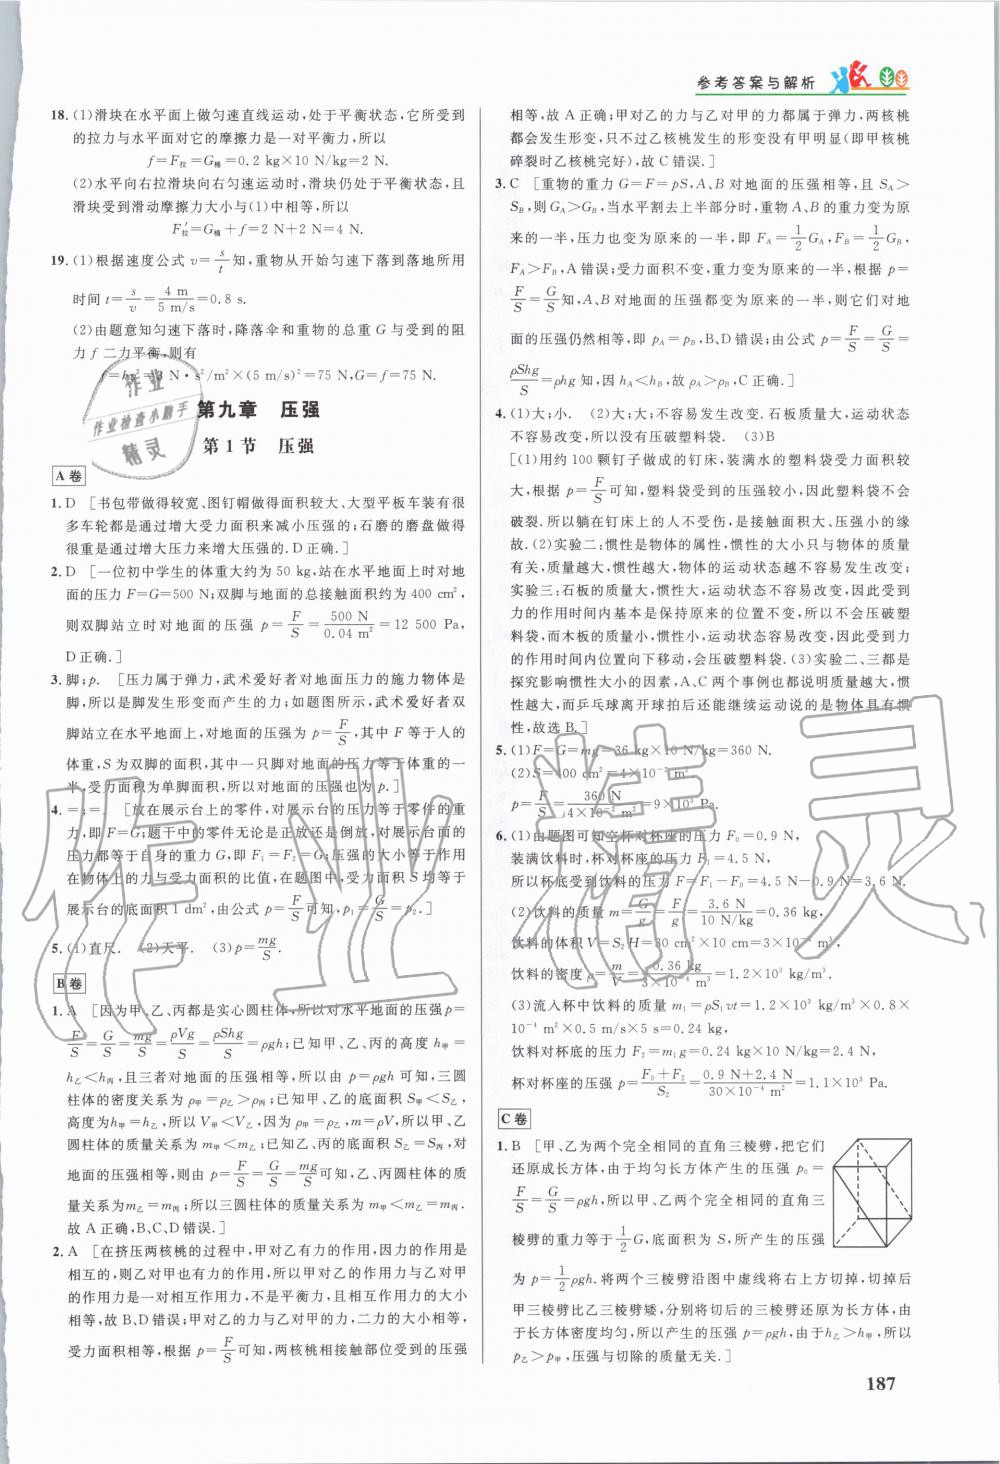 参考答案与解析
18. (1)滑块在水平面上做匀速直线运动,处于平衡状态,它所受到
的拉力与水平面对它的摩擦力是一对平衡力,所以
f=F拉=G桶=0.2 kg×10 N/kg=2 N.
(2)水平向右拉滑块向右匀速运动时,滑块仍处于平衡状态,且
滑块受到滑动摩擦力大小与(1)中相等,所以
F′拉=G桶+f=2 N+2 N=4 N.
19. (1)根据速度公式 v=s/t知,重物从开始匀速下落到落地所用
时间 t=s/v=4 m/5 m/s=0.8 s.
(2)由题意知匀速下落时,降落伞和重物的总重 G 与受到的阻
力 f 二力平衡,则有
f=kv²=3 N·s²/m²×(5 m/s)²=75 N,G=f=75 N.
第九章 压强
第 1 节 压强
A 卷
1. D [书包带做得较宽、图钉帽做得面积较大、大型平板车装有很
多车轮都是通过增大受力面积来减小压强的;石磨的磨盘做得
很重是通过增大压力来增大压强的.D正确.]
2. D [一位初中学生的体重大约为 50 kg,站在水平地面上时对地
面的压力 F=G=500 N;双脚与地面的总接触面积约为 400 cm²,
则双脚站立时对地面的压强 p=F/S=500 N/0.04 m²=12 500 Pa,
D正确.]
3. 脚;p. [压力属于弹力,武术爱好者对地面压力的施力物体是
脚,所以是脚发生形变而产生的力;如题图所示,武术爱好者双
脚站立在水平地面上,对地面的压强为 p=F/S,其中 F 等于人的
体重,S 为双脚的面积,其中一只脚对地面的压力等于体重的一
半,受力面积为单脚面积,所以对地面的压强也为 p.]
4. =;= [放在展示台上的零件,对展示台的压力等于零件的重
力,即 F=G;题干中的零件无论是正放还是倒放,对展示台面的
压力都等于自身的重力 G,即 F₁=F₂=G;压强的大小等于作用
在物体上的力与受力面积的比值,在题图中,受力面积 S 均等于
展示台的底面积 1 dm²,由公式 p=F/S可知,p₁=G/S=p₂.]
5. (1)直尺. (2)天平. (3)p=mg/S.
B 卷
1. A [因为甲、乙、丙都是实心圆柱体,所以对水平地面的压强p=
F/S=G/S=mg/S=ρVg/S=ρShg/S=ρgh;已知甲、乙、丙的高度 h甲=
h乙<h丙,且三者对地面的压强相等,所以由 p=ρgh 可知,三圆
柱体的密度关系为 ρ甲=ρ乙>ρ丙;已知甲、乙的底面积 S甲<S乙,
高度为h甲=h乙,所以 V甲<V乙,因为 ρ甲=ρ乙,m=ρV,所以甲、乙
圆柱体的质量关系为 m甲<m乙;已知乙、丙的底面积 S乙=S丙,对
地面的压强相等,则由 p=F/S=G/S=mg/S可知,乙、丙圆柱体的质
量关系为m乙=m丙;所以三圆柱体的质量关系为 m甲<m乙=m丙.
故 A正确,B、C、D错误.]
2. A [在挤压两核桃的过程中,甲对乙有力的作用,因力的作用是
相互的,则乙对甲也有力的作用,所以甲对乙的作用力与乙对甲
的作用力是一对相互作用力,不是平衡力,且相互作用力的大小
相等,故 B、D错误;甲对乙的力与乙对甲的力,二力的大小相等,
受力面积相等,根据 p=F/S可知,两核桃相接触部位受到的压强
相等,故 A 正确;甲对乙的力与乙对甲的力都属于弹力,两核桃
都会发生形变,只不过乙核桃发生的形变没有甲明显(即甲核桃
碎裂时乙核桃完好),故 C 错误.]
3. C [重物的重力 G=F=pS,A、B 对地面的压强相等,且 S_A>
S_B,则 G_A>G_B,当水平割去上半部分时,重物 A、B 的重力变为原
来的一半,压力也变为原来的一半,即 F_A=1/2 G_A,F_B=1/2 G_B,
F_A>F_B,A错误;受力面积不变,重力变为原来的一半,根据 p=
F/S=G/S知,A、B 对地面的压强都变为原来的一半,则它们对地
面的压强仍然相等,即 p_A=p_B,B、D错误;由公式 p=F/S=G/S=
ρShg/S=ρhg 知,因 h_A<h_B,故 ρ_A>ρ_B,C 正确.]
4. (1)大;小. (2)大;不容易发生改变.石板质量大,运动状态
不容易改变,所以没有压破塑料袋. (3)B
[(1)用约 100 颗钉子做成的钉床,装满水的塑料袋受力面积较
大,根据 p=F/S可知,塑料袋受到的压强较小,因此塑料袋不会
破裂.所以躺在钉床上的人不受伤,是接触面积大、压强小的缘
故.(2)实验二:惯性是物体的属性,惯性的大小只与物体的质量
有关,质量越大,惯性越大,物体的运动状态越不容易发生改变;
实验三:石板的质量大,惯性大,运动状态不容易改变,因此受到
力的作用时间内基本是保持原来的位置不变,所以不会压破塑
料袋,而木板的质量小,惯性小,运动状态容易改变,所以受到力
的作用时间内位置向下移动,会压破塑料袋.(3)实验二、三都是
探究影响惯性大小的因素,A、C 两个事例也都说明质量越大,
惯性越大,而乒乓球离开球拍后还能继续运动说的是物体具有惯
性,故选 B.]
5. (1)F=G=mg=36 kg×10 N/kg=360 N.
(2)S=400 cm²=4×10⁻² m²
p=F/S=360 N/4×10⁻² m²=9×10³ Pa.
6. (1)由题图可知空杯对杯座的压力 F₀=0.9 N,
装满饮料时,杯对杯座的压力 F₁=4.5 N,
所以杯底受到饮料的压力 F=F₁-F₀=4.5 N-0.9 N=3.6 N.
(2)饮料的质量 m=G/g=F/g=3.6 N/10 N/kg=0.36 kg,
饮料的体积 V=S₂H=30 cm²×10 cm=3×10⁻⁴ m³,
饮料的密度 ρ=m/V=0.36 kg/3×10⁻⁴ m³=1.2×10³ kg/m³.
(3)流入杯中饮料的质量 m₁=ρS₁vt=1.2×10³ kg/m³×0.8×
10⁻⁴ m²×0.5 m/s×5 s=0.24 kg,
饮料对杯底的压力 F₂=m₁g=0.24 kg×10 N/kg=2.4 N,
杯对杯座的压强 p=F₀+F₂/S₂=0.9 N+2.4 N/30×10⁻⁴ m²=1.1×10³ Pa.
C 卷
1. B [甲、乙为两个完全相同的直角三棱劈,把它们
还原成长方体,由于均匀长方体产生的压强 p₀=
F/S=G/S=ρgh,所以甲、乙两个完全相同的直角三
棱劈的重力等于1/2 G,底面积为 S,所产生的压强
为 p=1/2 ρgh.将两个三棱劈沿图中虚线将右上方切掉,切掉后
甲三棱劈比乙三棱劈矮,分别将切后的三棱劈还原为长方体,由
于长方体密度均匀,所以产生的压强 p=ρgh,由于h乙>h甲,所以
p乙>p甲,压强与切除的质量无关.]
187
作业
作业检查小助手
精灵
作业精灵